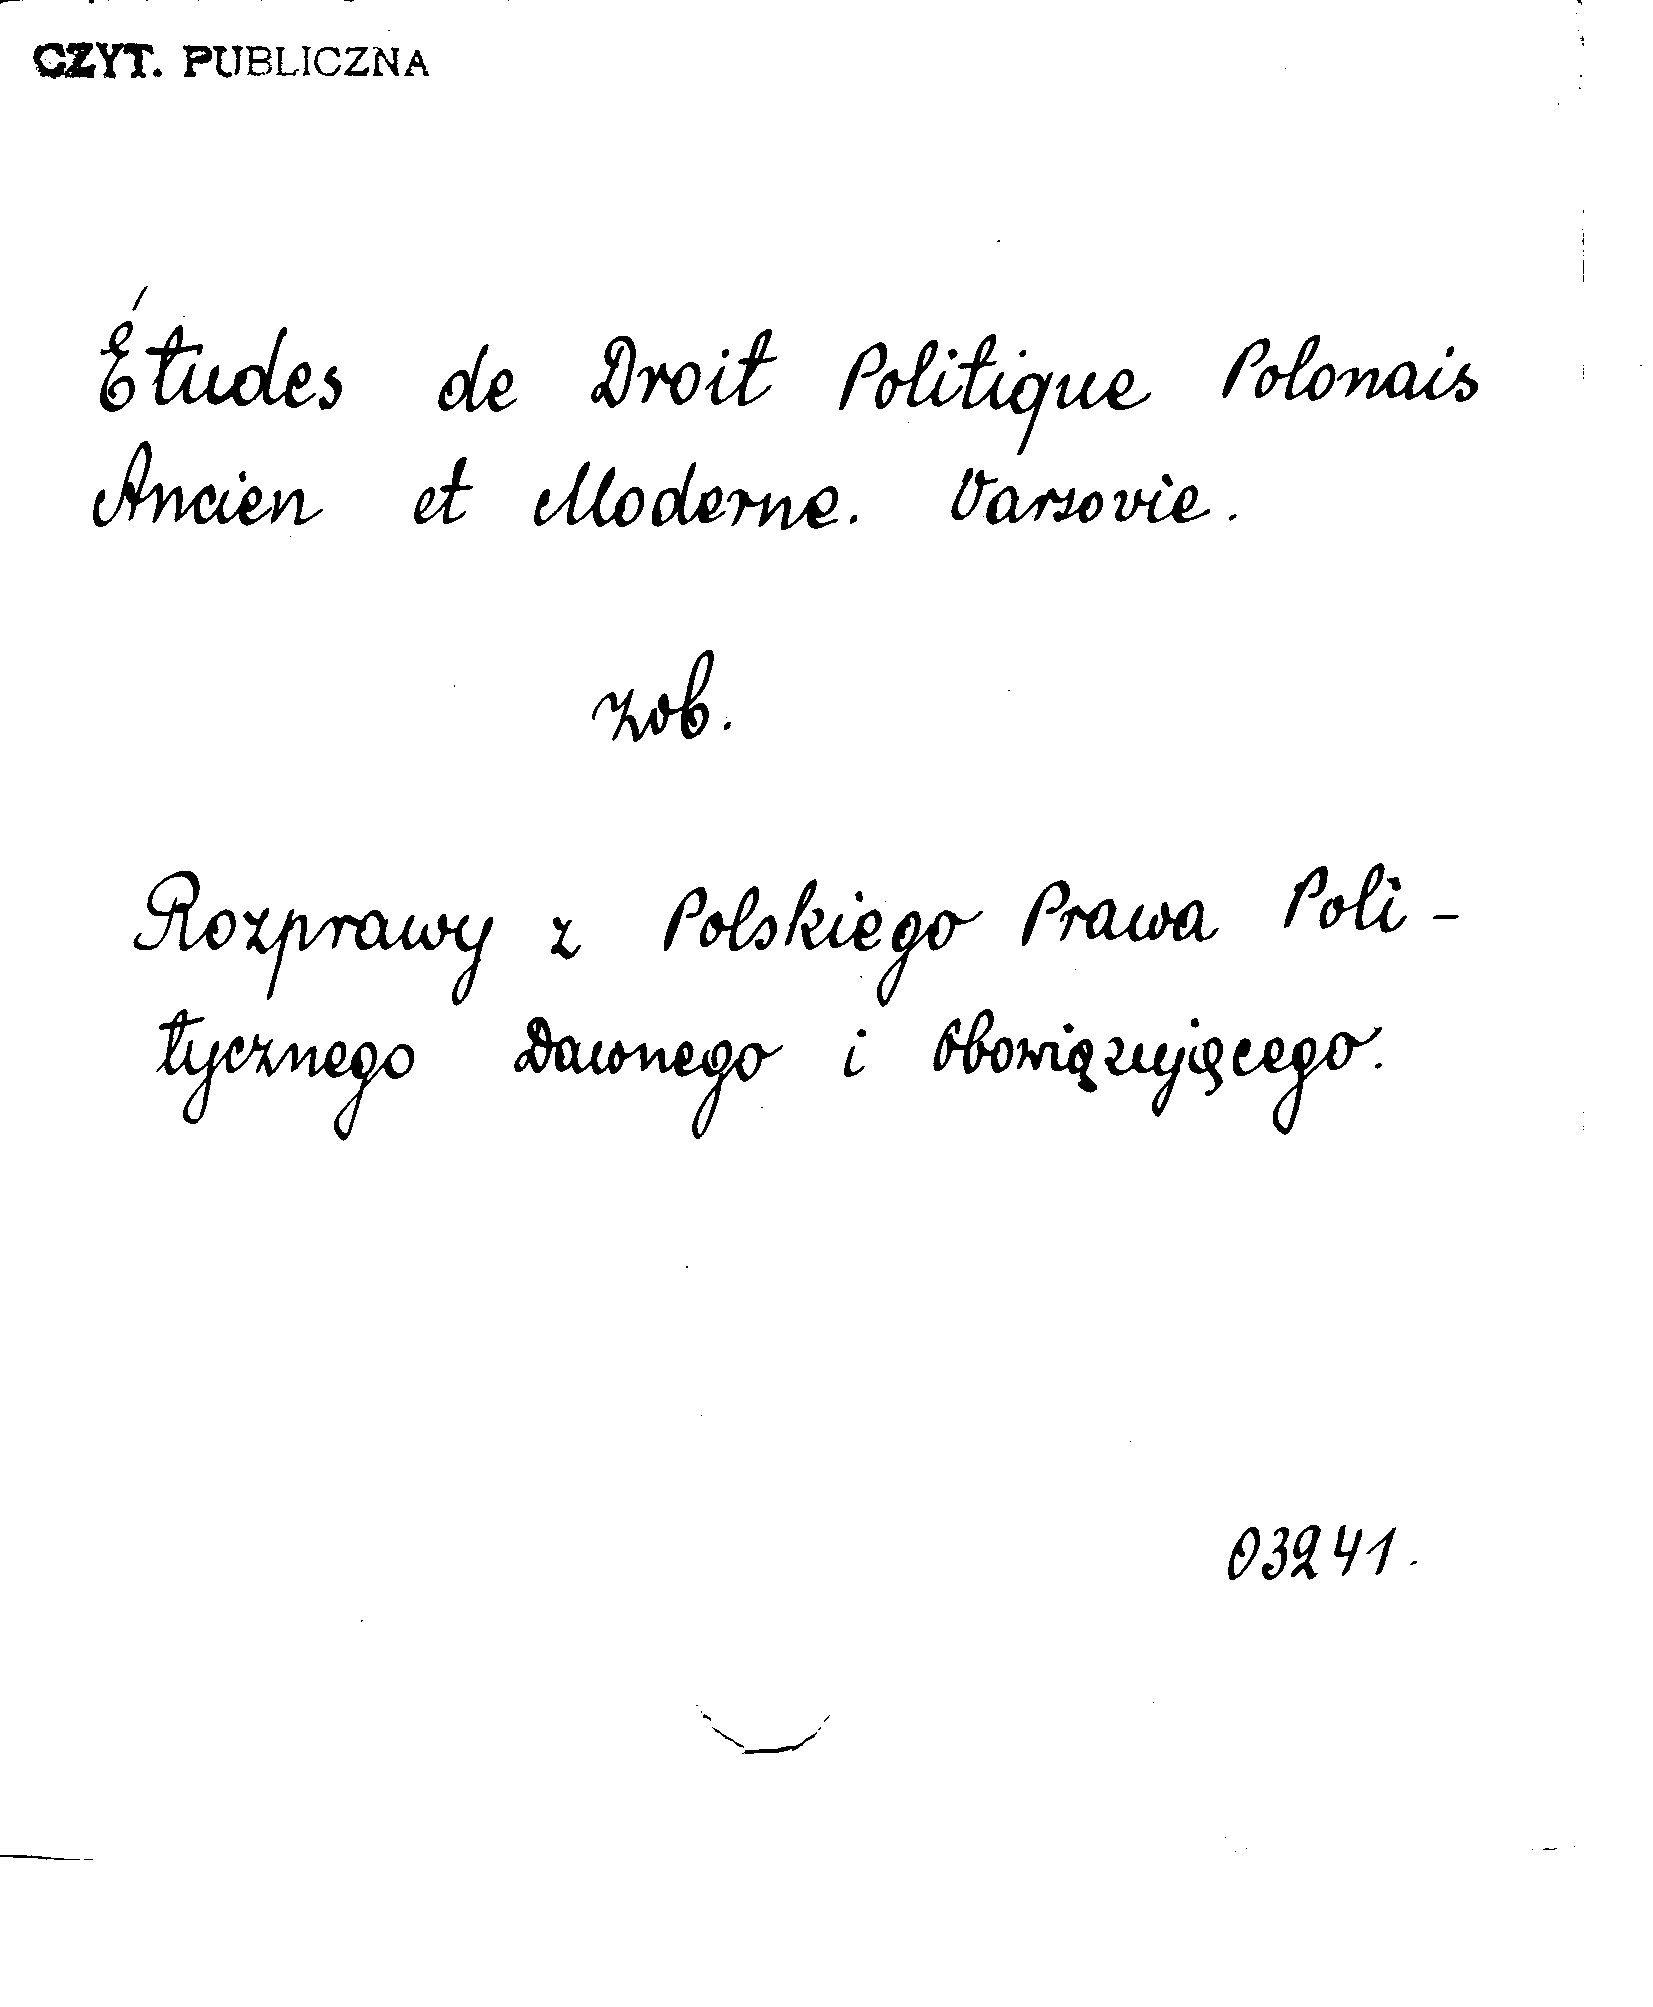 CZYT. PUBLICZNA
Études de Droit Politique Polonais
Ancien et Moderne. Varsovie.
zob.
Rozprawy z Polskiego Prawa Poli-
tycznego Dawnego i Obowiązującego.
03241.